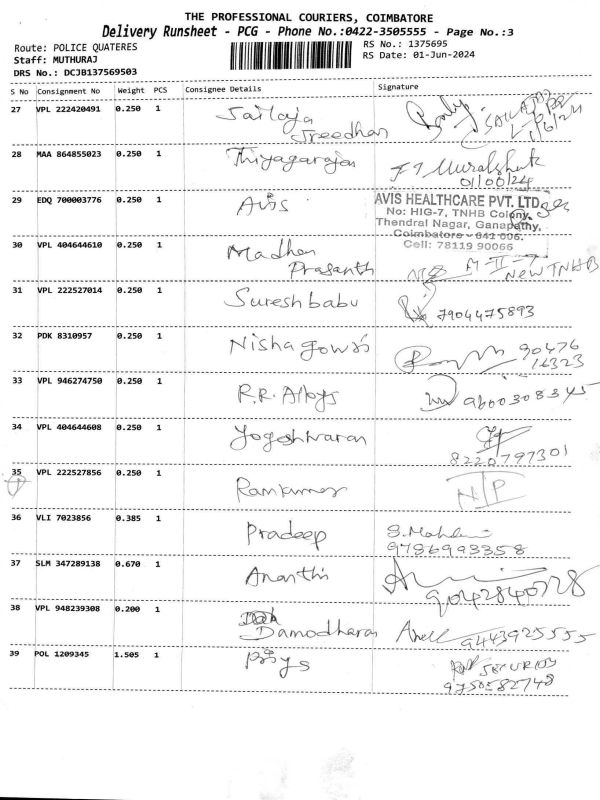 THE PROFESSIONAL COURIERS, COIMBATORE
Delivery Runsheet - PCG - Phone No.:0422-3505555 - Page No.:3
Route: POLICE QUATERES
RS No.: 1375695
Staff: MUTHURAJ
RS Date: 01-Jun-2024
DRS No.: DCJB137569503
S No Consignment No Weight PCS Consignee Details Signature
27 VPL 222420491 0.250 1 Sailaja
Sreedhan
28 MAA 864855023 0.250 1 Thiyagarajan
29 EDQ 700003776 0.250 1 Avis
AVIS HEALTHCARE PVT. LTD.
No: HIG-7, TNHB Colony,
Thendral Nagar, Ganapathy,
Coimbatore - 641 006.
Cell: 78119 90066
30 VPL 404644610 0.250 1 Madhan
Prasanth
M-II-7
NEW TNHB
31 VPL 222527014 0.250 1 Suresh babu 7904475893
32 PDK 8310957 0.250 1 Nisha gowri 90476
16323
33 VPL 946274750 0.250 1 R.R. Alloys 9600308345
34 VPL 404644608 0.250 1 Yogeshwaran
8220797301
35 VPL 222527856 0.250 1 Ramkumar N/P
36 VLI 7023856 0.385 1 Pradeep
9786993358
37 SLM 347289138 0.670 1 Ananthi
9042840728
38 VPL 948239308 0.200 1 Damodharan 9443925555
39 POL 1209345 1.505 1
9750582748